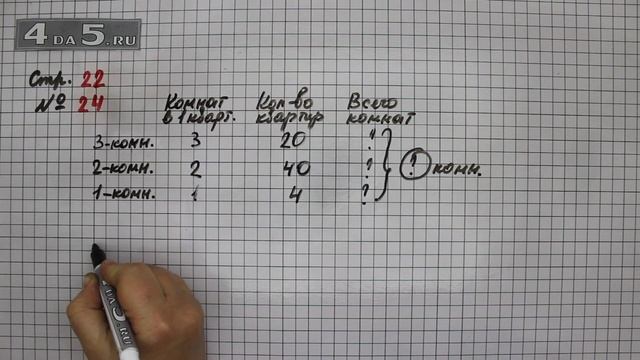 4DA5.RU
Стр. 22
№ 24
Комнат в 1 кварт.
Кол-во квартир
Всего комнат
3-комн. 3 20 ?
2-комн. 2 40 ?
1-комн. 1 4 ?
? комн.
4DA5.RU